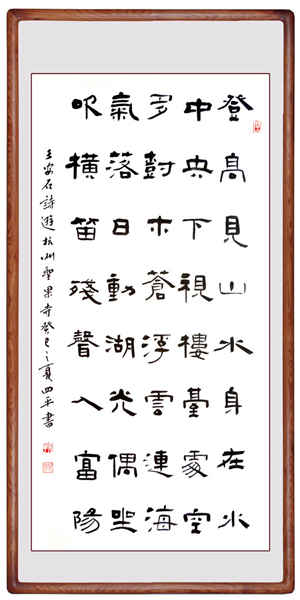 登高見山水身在水
中央下視樓臺處空
多樹木蒼浮雲連海
氣落日動湖光偶坐
吹橫笛殘聲入富陽
王安石詩遊杭州聖果寺癸巳之夏四平書